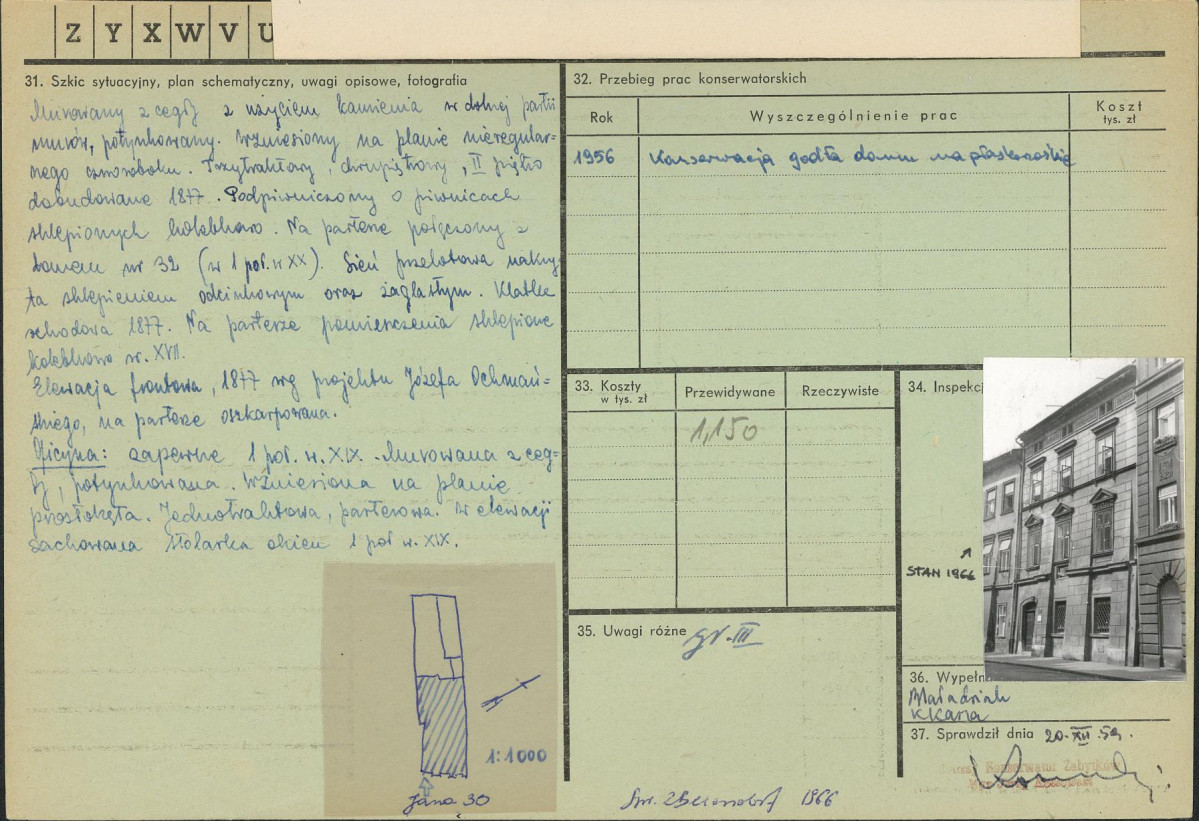 Z Y X W V U
31. Szkic sytuacyjny, plan schematyczny, uwagi opisowe, fotografia
Murowany z cegły z użyciem kamienia w dolnej partii
murów, potynkowany. Wzniesiony na planie nieregular-
nego czworoboku. Trzytraktowy, dwupiętrowy, II piętro
dobudowane 1877. Podpiwniczony o piwnicach
sklepionych kolebkowo. Na parterze połączony z
domem nr 32 (w 1 poł. w XX). Sień przelotowa nakry-
ta sklepieniem odcinkowym oraz żaglastym. Klatka
schodowa 1877. Na parterze pomieszczenia sklepione
kolebkowo w. XVII.
Elewacja frontowa, 1877 wg projektu Józefa Ochmań-
skiego, na parterze oszkarpowana.
Oficyna: zapewne 1 poł. w. XIX. Murowana z ceg-
ły, potynkowana. Wzniesiona na planie
prostokąta. Jednotraktowa, parterowa. W elewacji
zachowana stolarka okien 1 poł w. XIX.
1:1000
Jana 30
32. Przebieg prac konserwatorskich
Rok
Wyszczególnienie prac
Koszt
tys. zł
1956
Konserwacja godła domu na płaskorzeźbie
33. Koszty
w tys. zł
Przewidywane
Rzeczywiste
1,150
34. Inspekcj
STAN 1966
35. Uwagi różne
gr. III
36. Wypełn
37. Sprawdził dnia 20.XII.59.
Konserwator Zabytków
1966